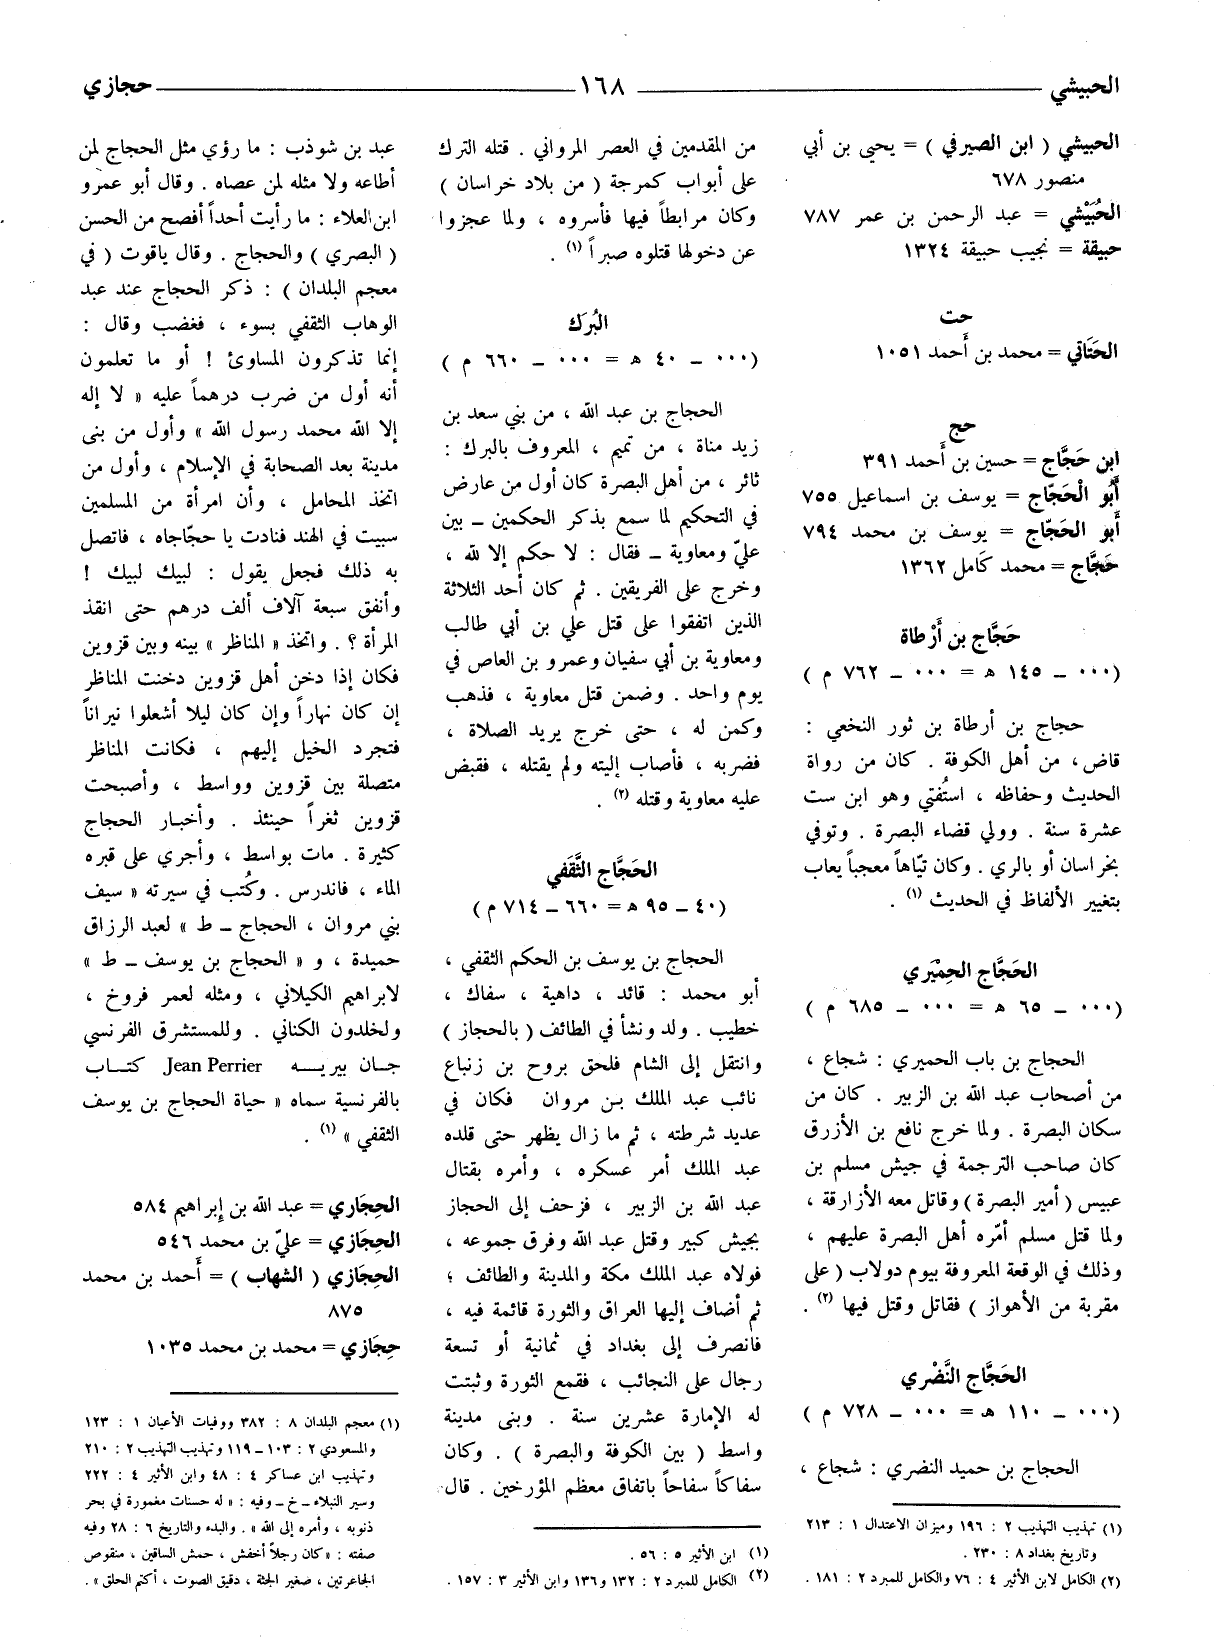 الحبيشي ١٦٨ حجازي
الحبيشي ( ابن الصيرفي ) = يحيى بن أبي
منصور ٦٧٨
الحُبَيْشي = عبد الرحمن بن عمر ٧٨٧
حبيقة = نجيب حبيقة ١٣٢٤
حت
الحَتَاتي = محمد بن أَحمد ١٠٥١
حج
ابن حَجَّاج = حسين بن أَحمد ٣٩١
أَبُو الْحَجّاج = يوسف بن اسماعيل ٧٥٥
أَبو الحَجّاج = يوسف بن محمد ٧٩٤
حَجَّاج = محمد كَامل ١٣٦٢
حَجَّاج بن أَرْطاة
(٠٠٠ ــ ١٤٥ هـ = ٠٠٠ ــ ٧٦٢ م )
حجاج بن أرطاة بن ثور النخعي :
قاض، من أهل الكوفة . كان من رواة
الحديث وحفاظه ، استُفتي وهو ابن ست
عشرة سنة . وولي قضاء البصرة . وتوفي
بخراسان أو بالري . وكان تيّاهاً معجباً يعاب
بتغيير الألفاظ في الحديث (١) .
الحَجَّاج الحِمْيَري
(٠٠٠ ــ ٦٥ هـ = ٠٠٠ ــ ٦٨٥ م )
الحجاج بن باب الحميري : شجاع ،
من أصحاب عبد الله بن الزبير . كان من
سكان البصرة . ولما خرج نافع بن الأزرق
كان صاحب الترجمة في جيش مسلم بن
عبيس ( أمير البصرة ) وقاتل معه الأزارقة ،
ولما قتل مسلم أمّره أهل البصرة عليهم ،
وذلك في الوقعة المعروفة بيوم دولاب ( على
مقربة من الأهواز ) فقاتل وقتل فيها (٢) .
الحَجَّاج النَّضْري
(٠٠٠ ــ ١١٠ هـ = ٠٠٠ ــ ٧٢٨ م )
الحجاج بن حميد النضري : شجاع ،
(١) تهذيب التهذيب ٢ : ١٩٦ وميزان الاعتدال ١ : ٢١٣
وتاريخ بغداد ٨ : ٢٣٠ .
(٢) الكامل لابن الأثير ٤ : ٧٦ والكامل للمبرد ٢ : ١٨١ .
من المقدمين في العصر المرواني . قتله الترك
على أبواب كمرجة ( من بلاد خراسان )
وكان مرابطاً فيها فأسروه ، ولما عجزوا
عن دخولها قتلوه صبراً (١) .
البُرَك
(٠٠٠ ــ ٤٠ هـ = ٠٠٠ ــ ٦٦٠ م )
الحجاج بن عبد الله ، من بني سعد بن
زيد مناة ، من تميم ، المعروف بالبرك :
ثائر ، من أهل البصرة كان أول من عارض
في التحكيم لما سمع بذكر الحكمين ــ بين
عليّ ومعاوية ــ فقال : لا حكم إلا لله ،
وخرج على الفريقين . ثم كان أحد الثلاثة
الذين اتفقوا على قتل علي بن أبي طالب
ومعاوية بن أبي سفيان وعمرو بن العاص في
يوم واحد . وضمن قتل معاوية ، فذهب
وكمن له ، حتى خرج يريد الصلاة ،
فضربه ، فأصاب إليته ولم يقتله ، فقبض
عليه معاوية وقتله (٢) .
الحَجَّاج الثَّقَفي
(٤٠ ــ ٩٥ هـ = ٦٦٠ ــ ٧١٤ م )
الحجاج بن يوسف بن الحكم الثقفي ،
أبو محمد : قائد ، داهية ، سفاك ،
خطيب . ولد ونشأ في الطائف ( بالحجاز )
وانتقل إلى الشام فلحق بروح بن زنباع
نائب عبد الملك بن مروان فكان في
عديد شرطته ، ثم ما زال يظهر حتى قلده
عبد الملك أمر عسكره ، وأمره بقتال
عبد الله بن الزبير ، فزحف إلى الحجاز
بجيش كبير وقتل عبد الله وفرق جموعه ،
فولاه عبد الملك مكة والمدينة والطائف ؛
ثم أضاف إليها العراق والثورة قائمة فيه ،
فانصرف إلى بغداد في ثمانية أو تسعة
رجال على النجائب ، فقمع الثورة وثبتت
له الإمارة عشرين سنة . وبنى مدينة
واسط ( بين الكوفة والبصرة ) . وكان
سفاكاً سفاحاً باتفاق معظم المؤرخين . قال
(١) ابن الأثير ٥ : ٥٦ .
(٢) الكامل للمبرد ٢ : ١٣٢ و ١٣٦ وابن الأثير ٣ : ١٥٧ .
عبد بن شوذب : ما رؤي مثل الحجاج لمن
أطاعه ولا مثله لمن عصاه . وقال أبو عمرو
ابن العلاء : ما رأيت أحداً أفصح من الحسن
( البصري ) والحجاج . وقال ياقوت ( في
معجم البلدان ) : ذكر الحجاج عند عبد
الوهاب الثقفي بسوء ، فغضب وقال :
إنما تذكرون المساوئ ! أو ما تعلمون
أنه أول من ضرب درهماً عليه « لا إله
إلا الله محمد رسول الله » وأول من بنى
مدينة بعد الصحابة في الإسلام ، وأول من
اتخذ المحامل ، وأن امرأة من المسلمين
سبيت في الهند فنادت يا حجّاجاه ، فاتصل
به ذلك فجعل يقول : لبيك لبيك !
وأنفق سبعة آلاف ألف درهم حتى انقذ
المرأة ؟ . واتخذ « المناظر » بينه وبين قزوين
فكان إذا دخن أهل قزوين دخنت المناظر
إن كان نهاراً وإن كان ليلا أشعلوا نيراناً
فتجرد الخيل إليهم ، فكانت المناظر
متصلة بين قزوين وواسط ، وأصبحت
قزوين ثغراً حينئذ . وأخبار الحجاج
كثيرة . مات بواسط ، وأجري على قبره
الماء ، فاندرس . وكُتب في سيرته « سيف
بني مروان ، الحجاج ــ ط » لعبد الرزاق
حميدة ، و « الحجاج بن يوسف ــ ط »
لابراهيم الكيلاني ، ومثله لعمر فروخ ،
ولخلدون الكناني . وللمستشرق الفرنسي
جان بيريه Jean Perrier كتاب
بالفرنسية سماه « حياة الحجاج بن يوسف
الثقفي » (١) .
الحِجَاري = عبد الله بن إبراهيم ٥٨٤
الحِجَازي = عليّ بن محمد ٥٤٦
الحِجَازي ( الشهاب ) = أَحمد بن محمد
٨٧٥
حِجَازي = محمد بن محمد ١٠٣٥
(١) معجم البلدان ٨ : ٣٨٢ ووفيات الأعيان ١ : ١٢٣
والمسعودي ٢ : ١٠٣ ــ ١١٩ وتهذيب التهذيب ٢ : ٢١٠
وتهذيب ابن عساكر ٤ : ٤٨ وابن الأثير ٤ : ٢٢٢
وسير النبلاء ــ خ ــ وفيه : « له حسنات مغمورة في بحر
ذنوبه ، وأمره إلى الله » . والبدء والتاريخ ٦ : ٢٨ وفيه
صفته : « كان رجلاً أخفش ، حمش الساقين ، منقوص
الجاعرتين ، صغير الجثة ، دقيق الصوت ، أكتم الحلق » .